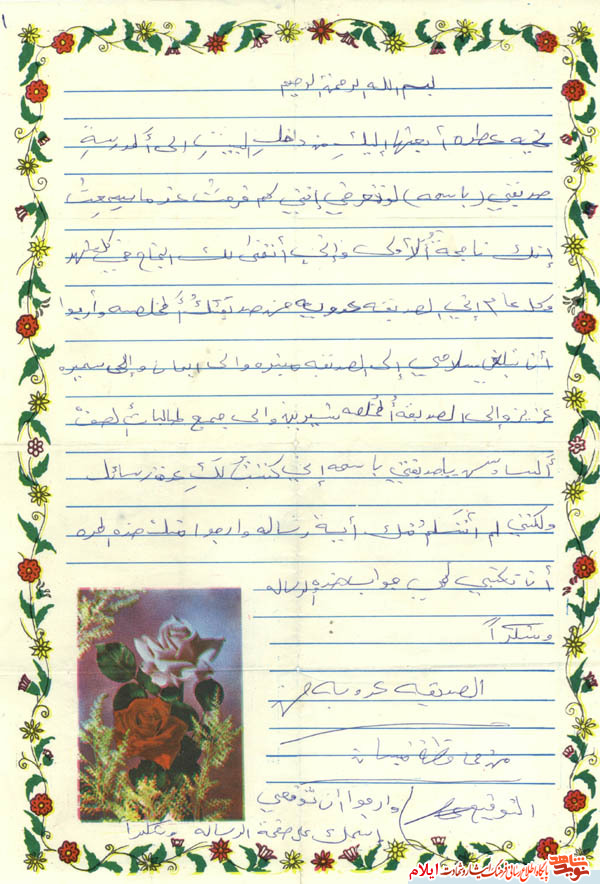 بسم الله الرحمن الرحيم
تحيه عطره أبعثها إليك من داخل البيت الى ألمدرسة
صديقتي (باسمه) لو تعرفي إنني كم فرحت عندما سمعت
إنك ناجحة ألأولى وإني أتمنى لك النجاح في كل شهر
وكل عام إني الصديقه عروبه من صديقتك ألمخلصه وأرجوا
أن تبلغي سلامي إلى الصديقه منيره والى ايمان وإلى سميره
عزيز وإلى الصديقة ألمخلصه شيرين والى جميع طالبات الصف
ألسادس ياصديقتي باسمه إني كتبت لك عدة رسائل
ولكنني لم أتسلم منك أية رساله وارجوا منك هذه المره
أن تكتبي لي جواب هذه الرساله
وشكراً
الصديقه عروبه
من محافظة ميسان
التوقيع
وارجوا ان توقعي
إسمك على صفحة الرساله وشكرا
نوید شاهد
پایگاه اطلاع رسانی فرهنگ ایثار و شهادت ایلام